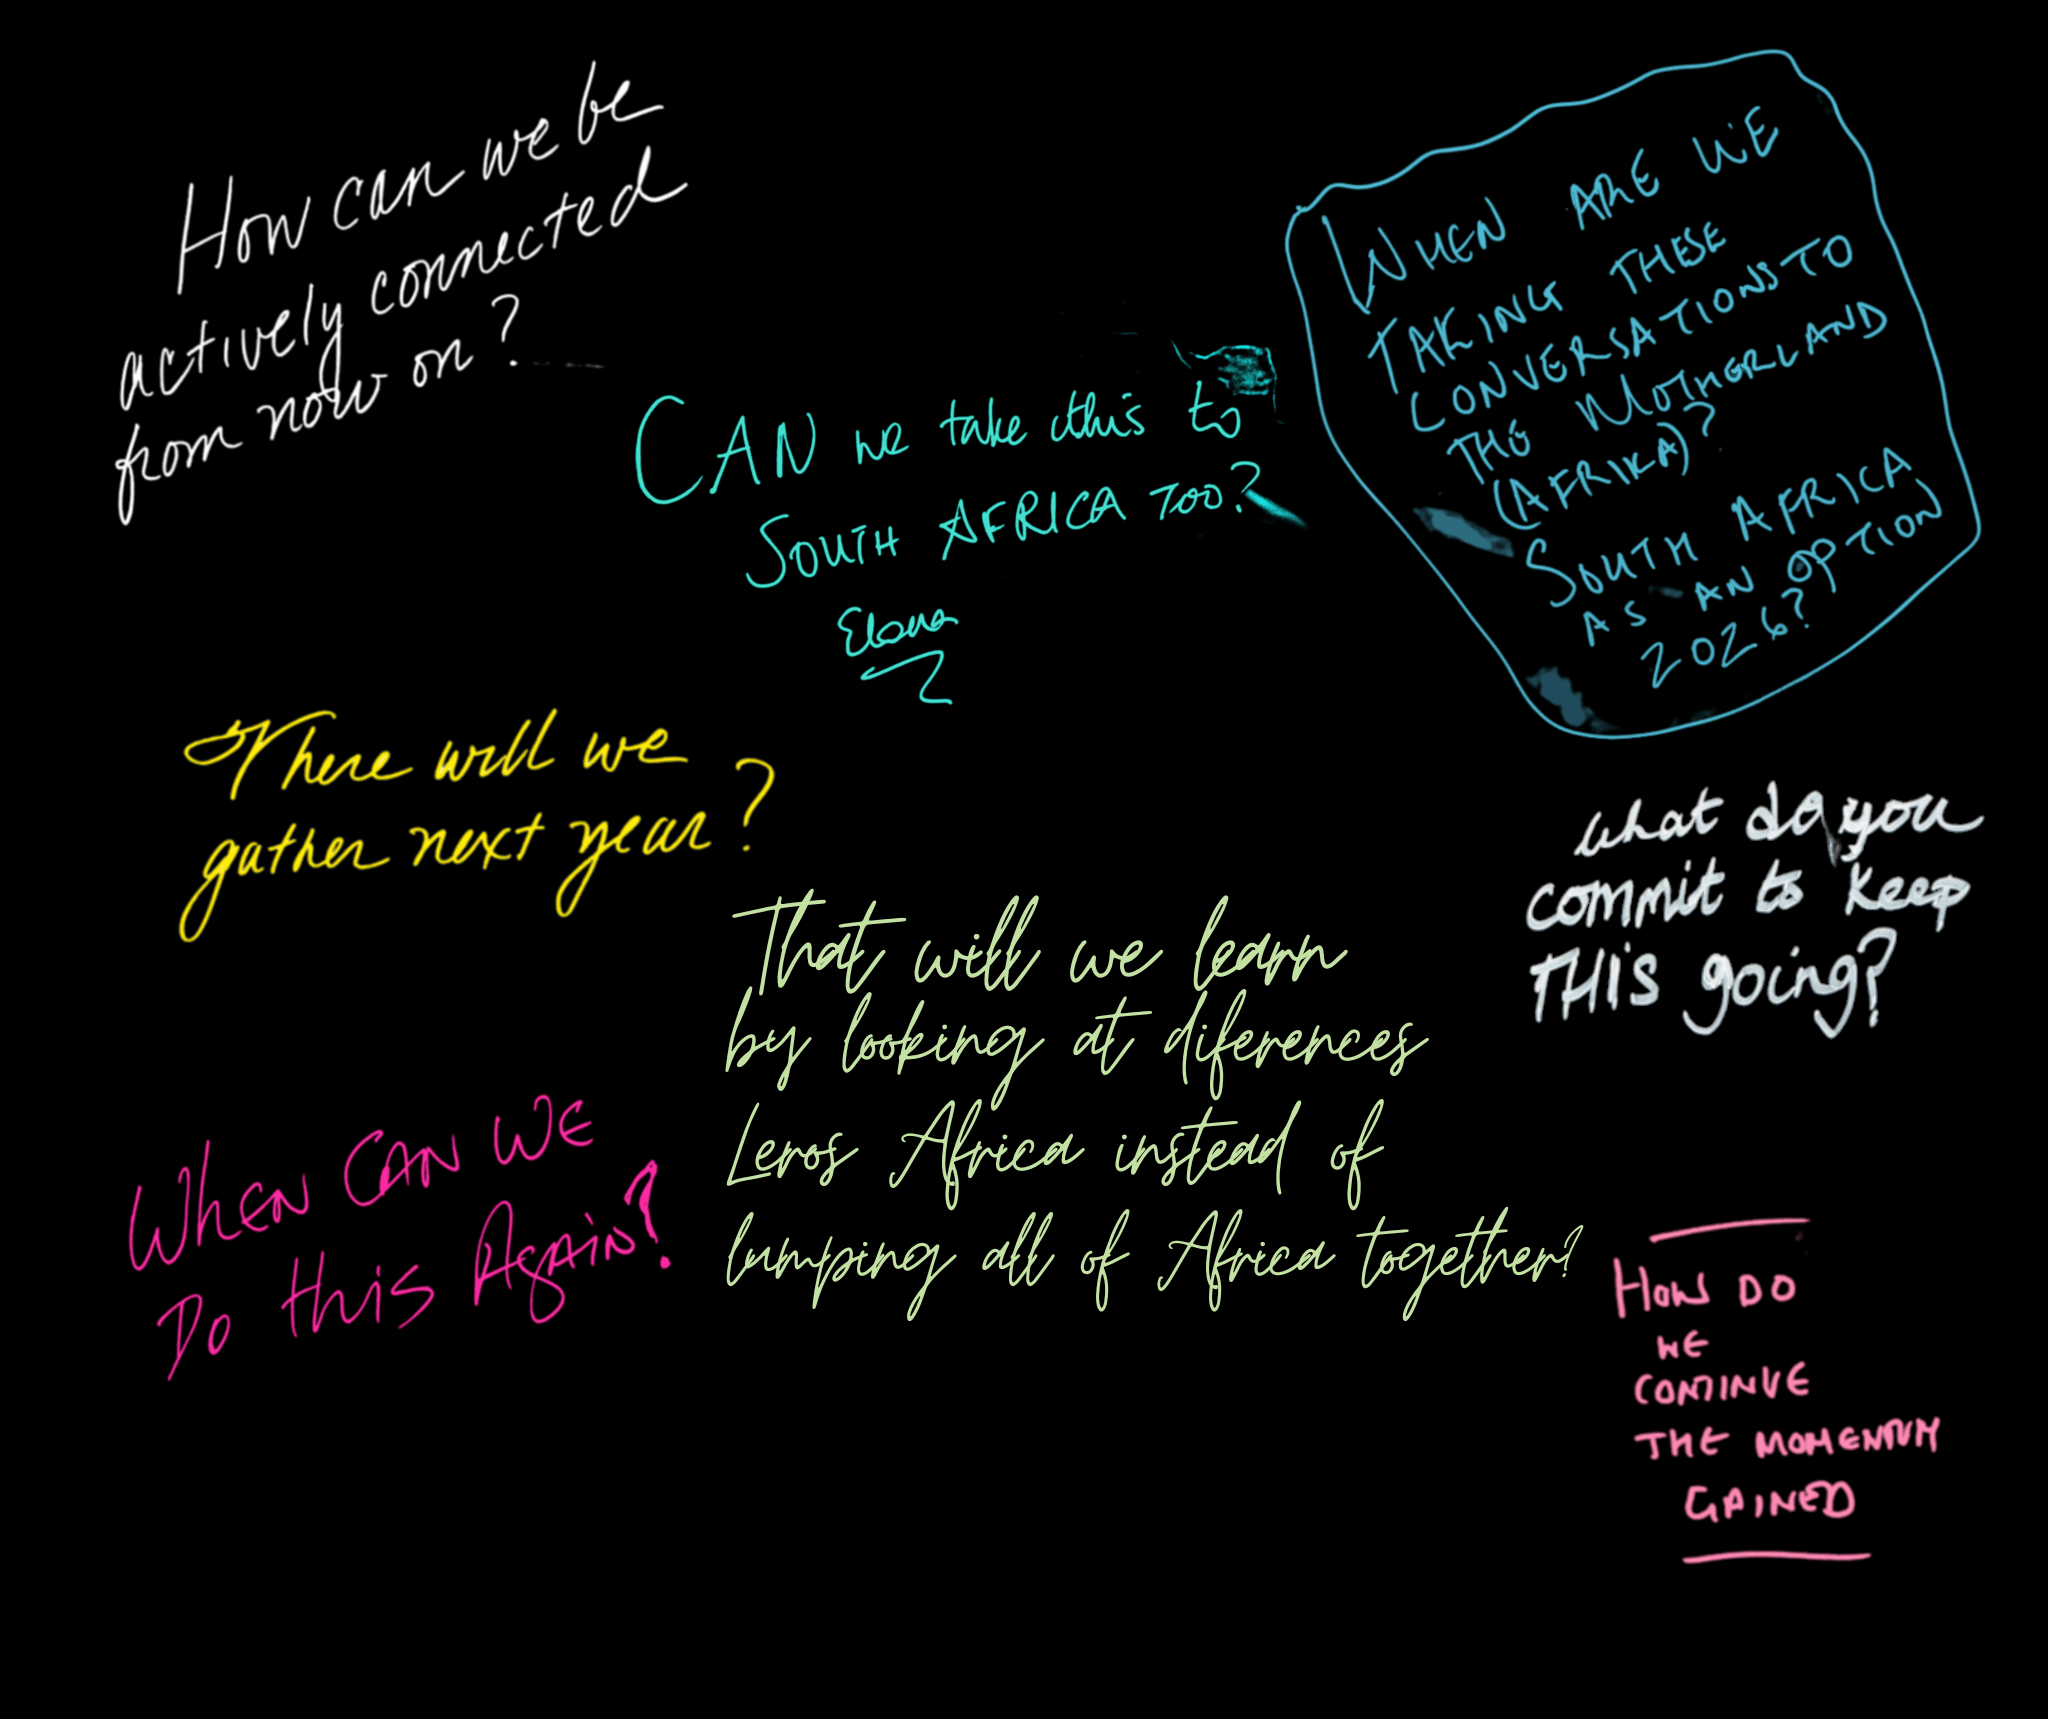 How can we be
actively connected
from now on?
CAN we take this to
SOUTH AFRICA TOO?
Elona
WHEN ARE WE
TAKING THESE
CONVERSATIONS TO
THE MOTHERLAND
(AFRIKA)?
SOUTH AFRICA
AS AN OPTION
2026?
There will we
gather next year?
what do you
commit to keep
THIS going?
That will we learn
by looking at diferences
Leros Africa instead of
lumping all of Africa together?
WHEN CAN WE
DO this AgAiN?
HOW DO
WE
CONTINUE
THE MOMENTUM
GAINED